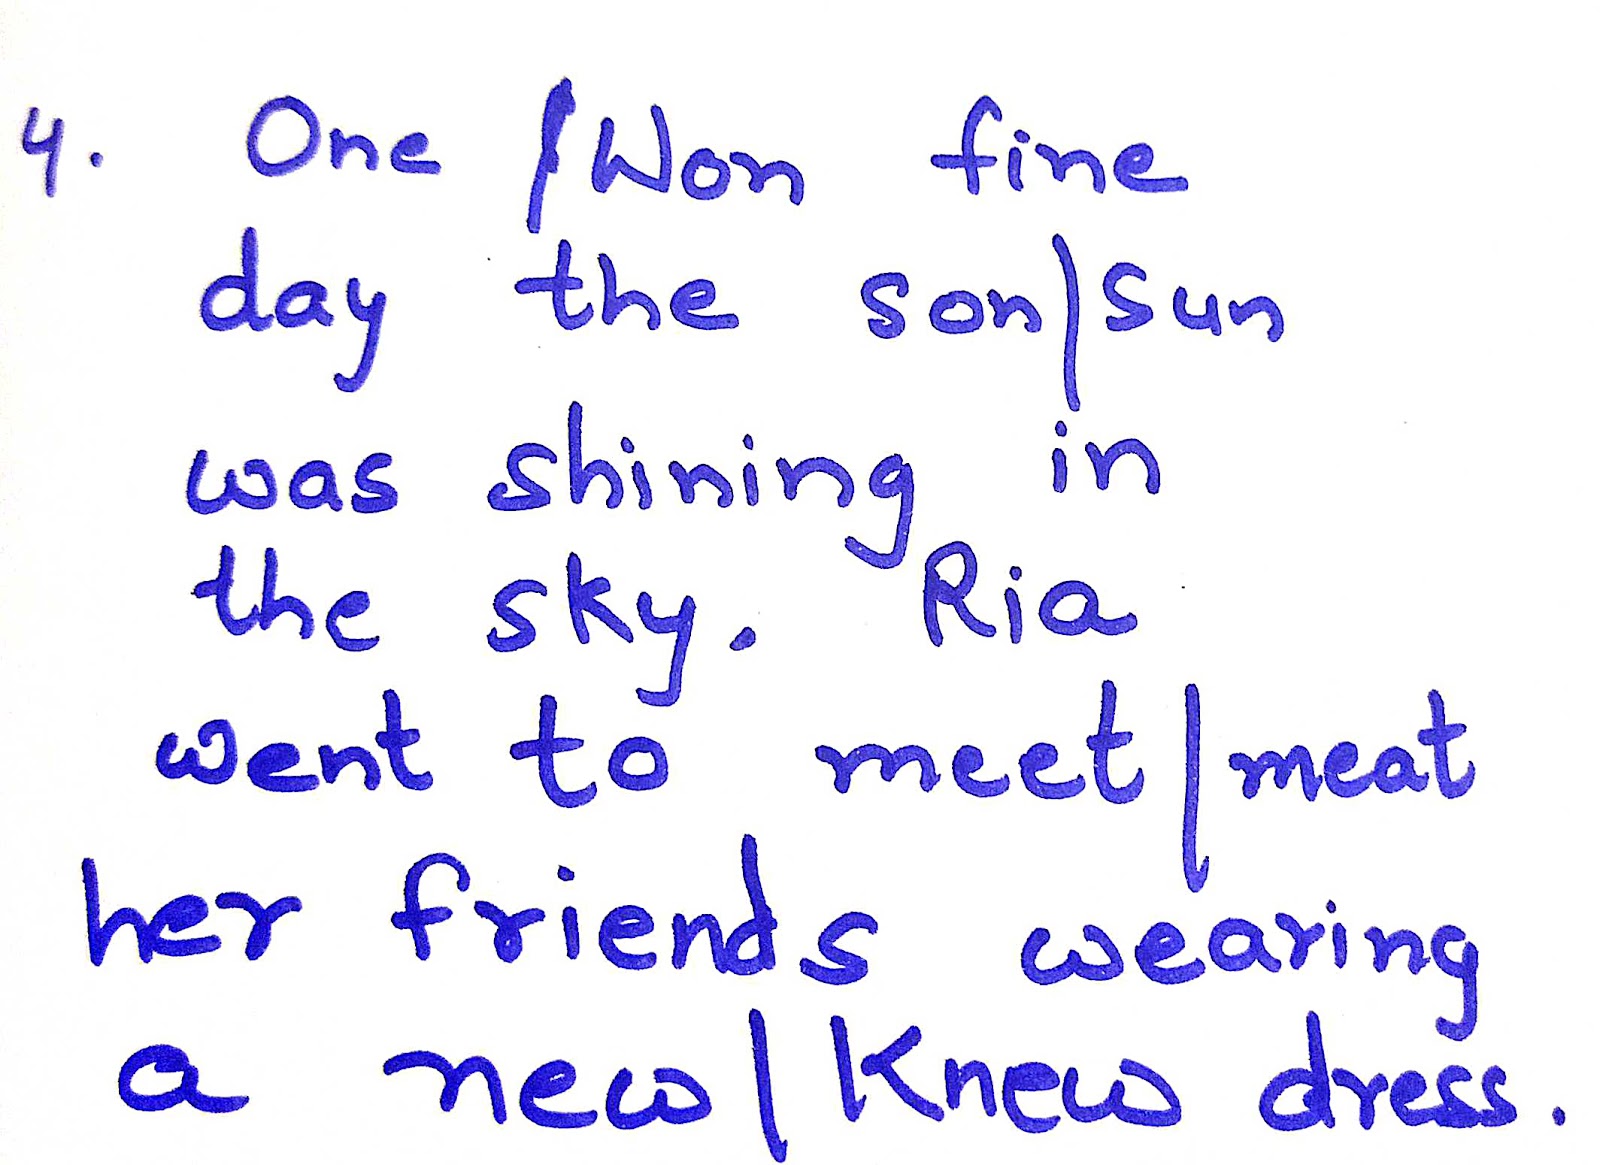 4. One / Won fine
day the son/sun
was shining in
the sky. Ria
went to meet/meat
her friends wearing
a new/Knew dress.